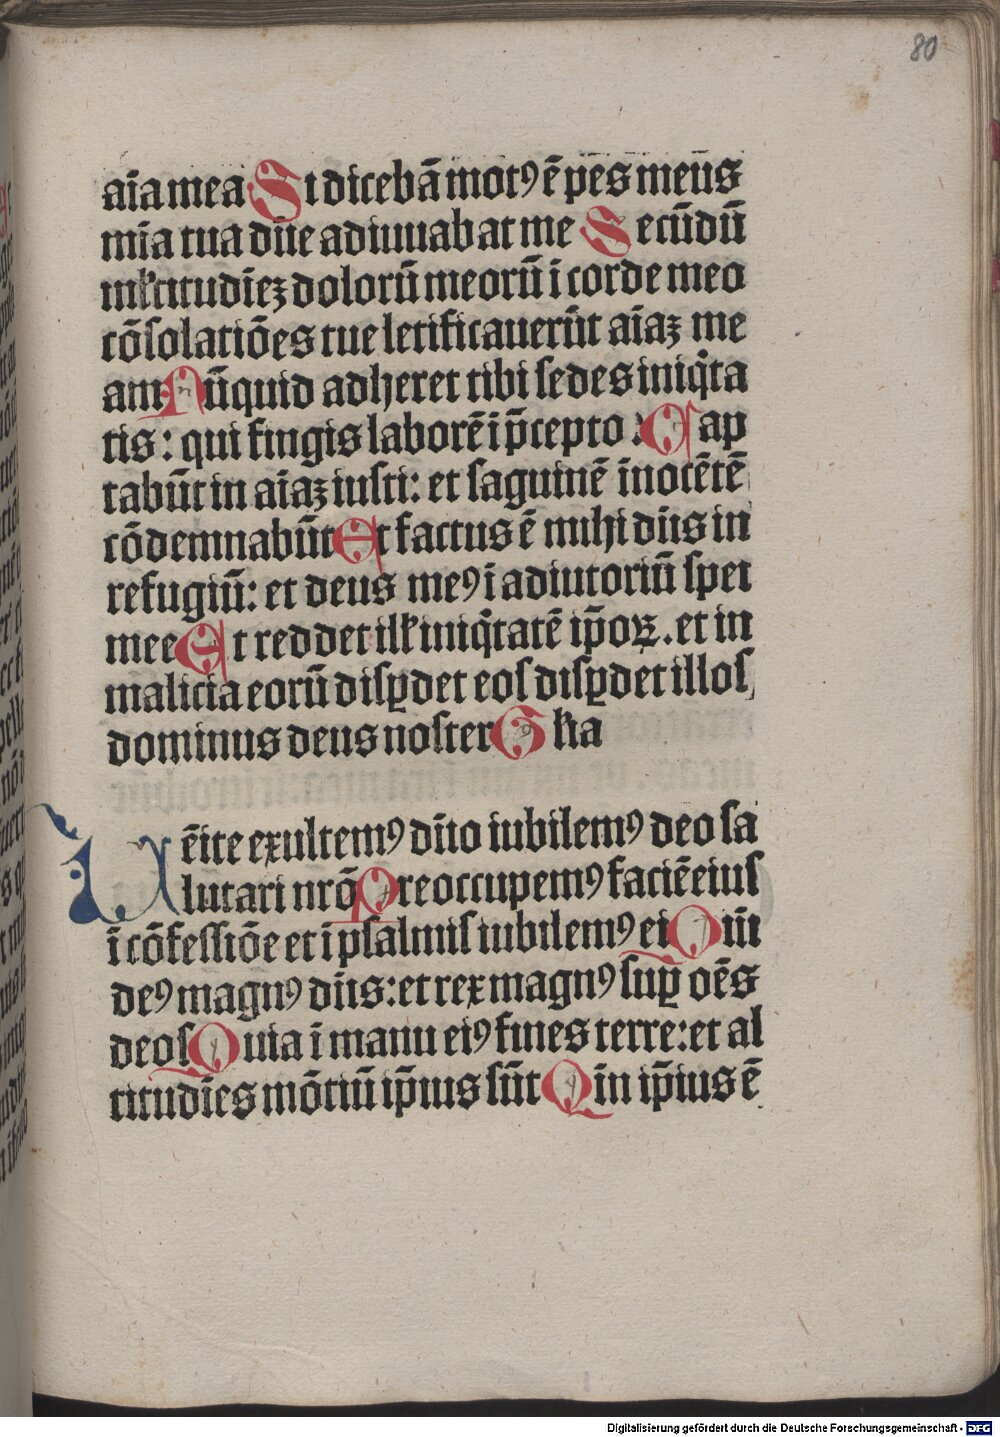 80
aīa mea Si dicebā motꝰ ē pes meus
mīa tua dūe adiuuabat me Secūdū
mĺtitudīeꝫ dolorū meorū ī corde meo
cōsolatiōes tue letificauerūt aīaꝫ me
am Nūquid adheret tibi sedes iniq̄ta
tis: qui fingis laborē ī p̄cepto: Cap
tabūt in aīaꝫ iusti: et saguinē īnocētē
cōdemnabūt Et factus ē mihi dūs in
refugiū: et deus meꝰ ī adiutoriū spei
mee Et reddet ilĺ iniq̄tatē ip̄oꝝ. et in
malicia eorū disꝑdet eos disꝑdet illos
dominus deus noster Glia
Uēite exultemꝰ dn̄o iubilemꝰ deo sa
lutari nrō Preoccupemꝰ faciē eius
ī cōfessiōe et ī psalmis iubilemꝰ ei Qm̄
deꝰ magnꝰ dūs: et rex magnꝰ suꝑ oēs
deos Quia ī manu eiꝰ fines terre: et al
titudīes mōtiū ip̄ius sūt Qm̄ ip̄ius ē
Digitalisierung gefördert durch die Deutsche Forschungsgemeinschaft - DFG